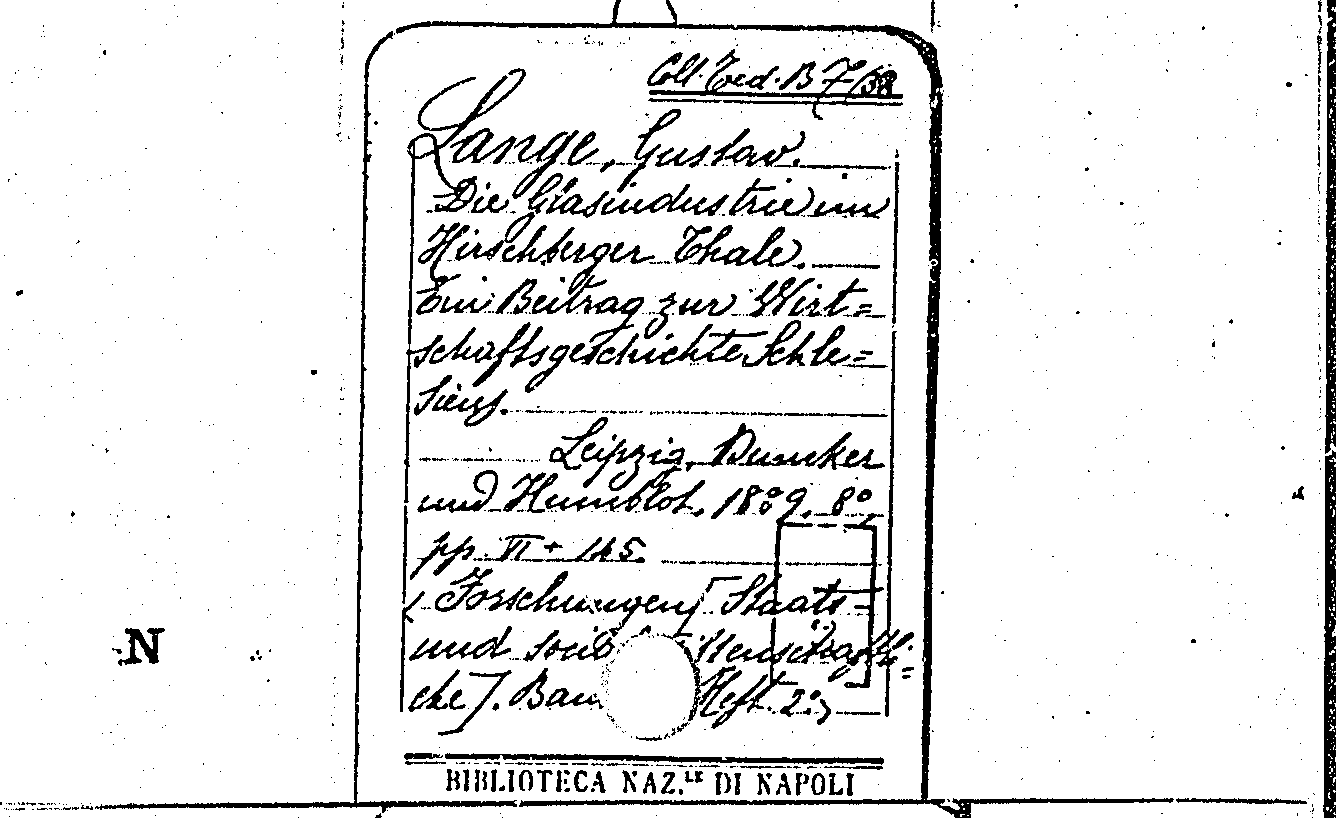 Coll. Ted. B 7/38
Lange, Gustav.
Die Glasindustrie im
Hirschberger Thale.
Ein Beitrag zur Wirt=
schaftsgeschichte Schle=
siens.
Leipzig, Duncker
und Humblot, 1889. 8°,
pp. VI + 145.
(Forschungen [Staats=
und Heft 2°)
che]. Heft 2°)
N
BIBLIOTECA NAZ.LE DI NAPOLI